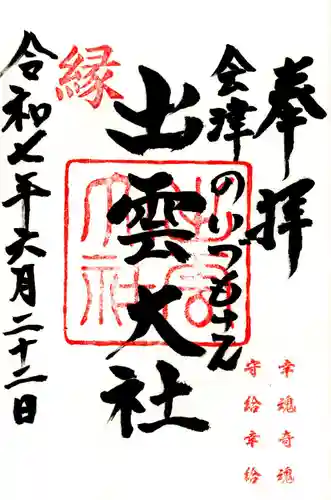 奉拝
会津のいづもさん
出雲大社
縁
令和七年六月二十二日
幸魂奇魂
守給幸給
出雲
大社